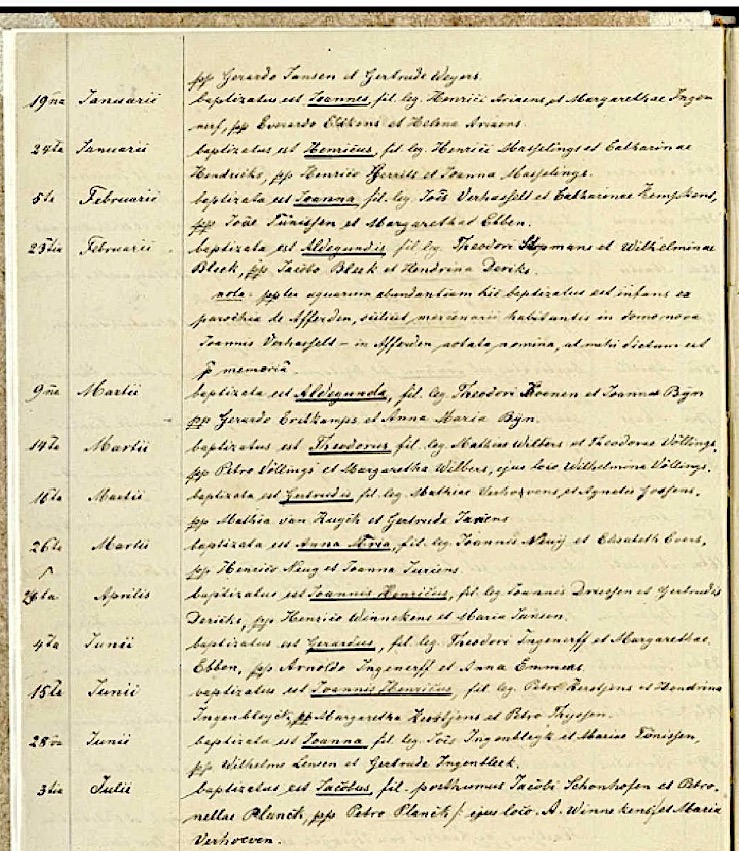 pp Gerardo Jansen et Gertrude Weyers.
19na Januarii baptizatus est Joannes, fil. leg. Henrici Ariaens, et Margarethae Inge-
nerf, pp Everardo et Helena Ariaens.
24ta Januarii baptizatus est Henricus, fil. leg. Henrici Masselings et Catharinae
Hendricks, pp Henrico Gerrits et Joanna Masselings.
5ta Februarii baptizata est Joanna, fil. leg. Jois Verhasselt et Catharinae Kempkens,
pp Joae Tünissen et Margaretha Ebben.
23tia Februarii baptizata est Aldegundis fil leg. Theodori et Wilhelminae
Bleek, pp Jacobo Bleek et Hendrina Deriks.
nota. ppter aquarum abundantiam hic baptizatus est infans ex
parochia de Afferden, mercenarii habitantis in domo nova
Joannis Verhasselt - in Afferden notata nomina, ut mihi dictum est
p memoria.
9na Martii baptizata est Aldegunda, fil. leg. Theodori Koenen et Joannae Bijn
pp Gerardo Erclkamps et Anna Maria Bijn.
14ta Martii baptizatus est Theodorus fil. leg. Mathiae Wilbers et Theodorae Völlings,
pp Petro Völlings et Margaretha Wilbers, ejus loco Wilhelmina Völlings.
16ta Martii baptizata est Gertrudis fil. leg. Mathiae Verhoevens, et Agnetis Goossens,
pp Mathia van Kuyck et Gertrude Juriens
26ta Martii baptizata est Anna Maria, fil. leg. Joannis Neuij et Elisabeth Evers,
pp Henrico Neug et Joanna Juriens.
26ta Aprilis baptizatus est Joannes Henricus, fil. leg. Joannis Driessen et Gertrudis
Dericks, pp Henrico Winnekens et Maria Jansen.
4ta Junii baptizatus est Gerardus, fil. leg. Theodori Ingenerff et Margarethae
Ebben, pp Arnoldo Ingenerff et Anna Emmers.
15ta Junii baptizatus est Joannis Henricus, fil. leg. Petri Kerstjens et Hendrina
Ingenbleyck, pp Margaretha Kerstjens et Petro Thyssen.
28va Junii baptizata est Joanna fil. leg. Jois Ingenbleyk et Mariae Tünissen,
pp Wilhelmo Lensen et Gertrude Ingenbleek.
3tia Julii baptizatus est Jacobus, fil. posthumus Jacobi Schonhofen et Petro-
nellae Planck, pp Petro Planck /: ejus loco. A. Winnekens/ et Maria
Verhoeven.